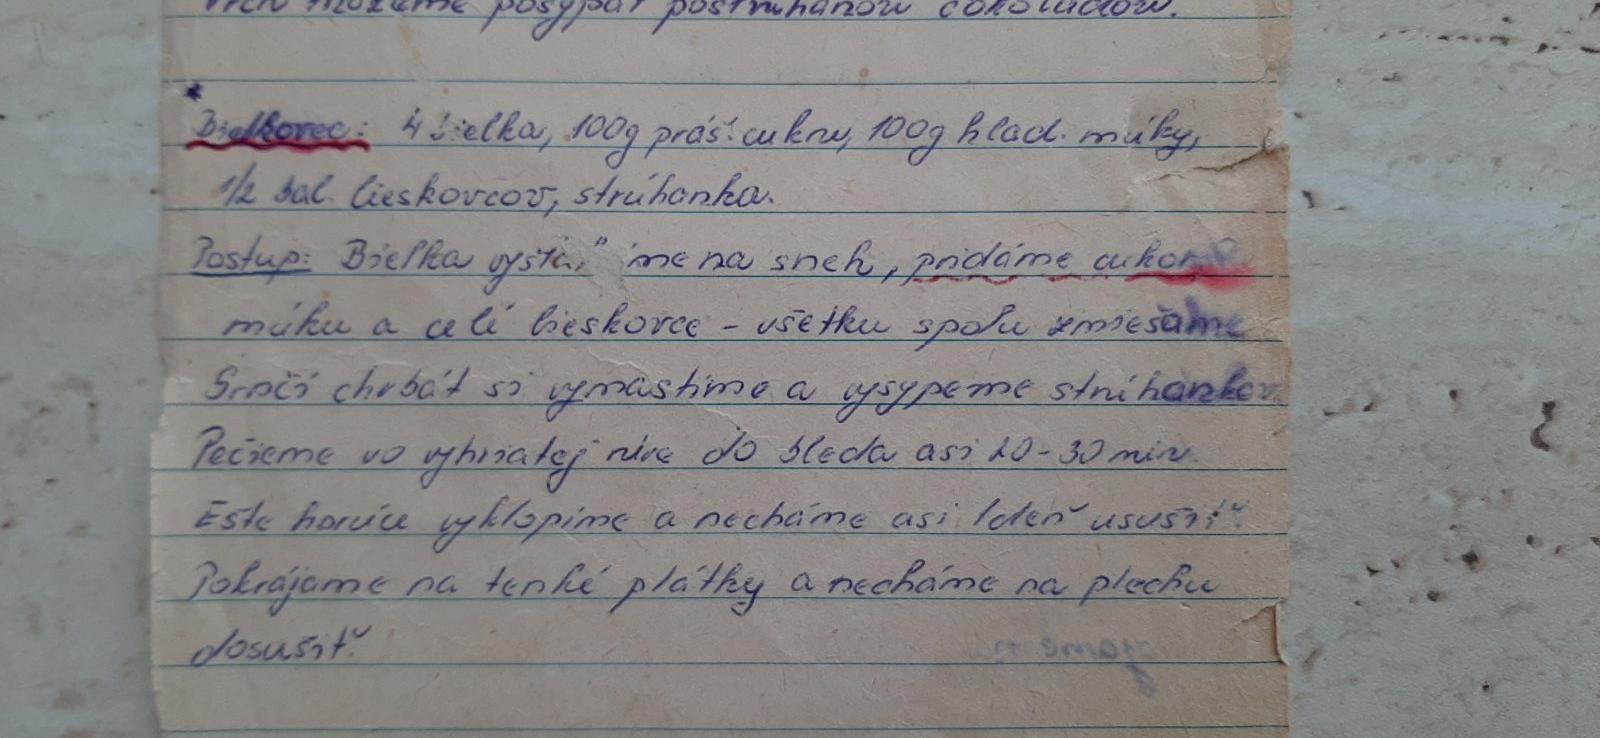 vrch môžeme posypať postrúhanou čokoládou.
Bielkovec: 4 bielka, 100g práš. cukru, 100g hlad. múky,
1/2 bal. lieskovcov, strúhanka.
Postup: Bielka na sneh, pridáme cukor,
múku a celé lieskovce - všetku spolu zmiešame
Srnčí chrbát si vymastíme a vysypeme strúhankou
Pečieme vo vyhriatej rúre do bleda asi 20-30 min.
Ešte horúce vyklopíme a necháme asi 1deň ususiť.
Pokrájame na tenké plátky a necháme na plechu
dosušiť.